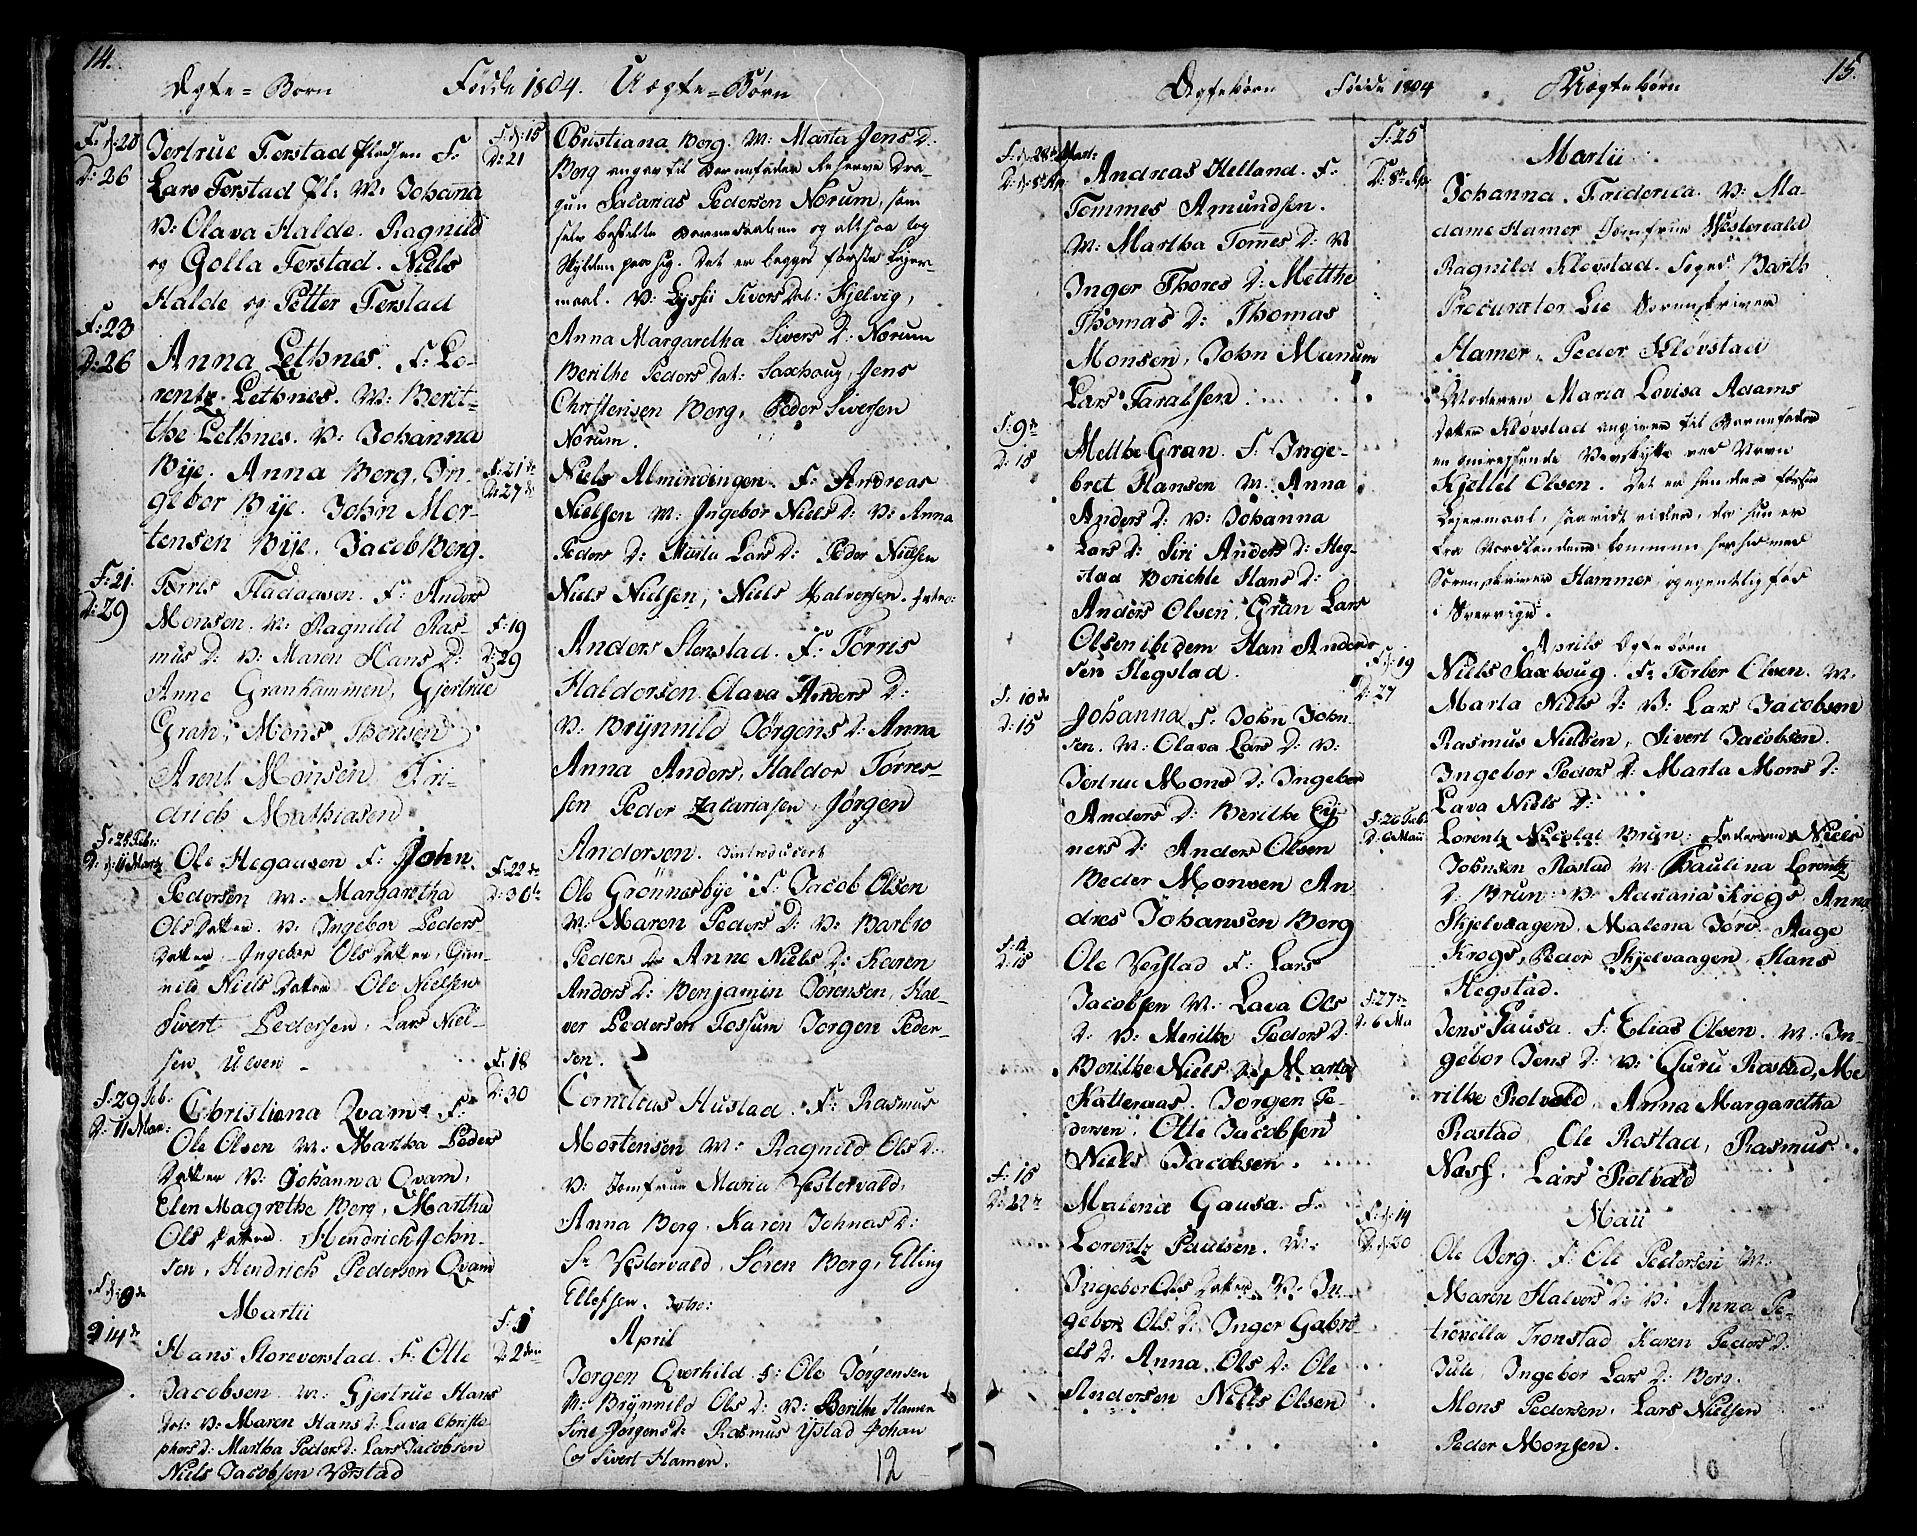 14.
Ægte = Børn Fødde 1804. Uægte = Børn
F: d: 20
D: 26
Jertrue Ferstad F:
Lars Ferstad M: Johana
V: Olava Halde. Ragnild
og Golla Ferstad. Niels
Halde og Petter Ferstad
F: 23
D: 26
Anna Lethnes. F: Lo-
rentz Lethnes. M: Berit-
the Lethnes. V: Johanna
Bije. Anna Berg, In-
gebor Bije. John Mor-
tensen Bije. Jacob Berg.
F: 21
D: 29
Torris Fladaasen. F: Anders
Monsen. M: Ragnild Ras-
mus D: V: Maren Hans D:
Anne Granhammen, Gjertrue
Gran, Mons Thorsen
Arent Monsen Fri-
drich Mathiasen
F: 25 Febr:
D: 11 Martz
Ole Hegaasen F: John
Pedersen M: Margaretha
Ols Datter. V: Ingebor Peders
Datter Ingebor Ols Datter, Gun-
nild Niels Datter Ole Nielsen
Sivert Pedersen, Lars Niel-
sen Ulven
F: 29 Feb:
D: 11 Mar:
Christiana Qvam F:
Ole Olsen M: Martha Peders
Datter V: Johanna Qvam,
Elen Magrethe Berg, Martha
Ols Datter. Hendrich John-
sen, Hendrich Pedersen Qvam
F: d: 9de
Martii
D 14de
Hans Storeverstad. F: Otte
Jacobsen M: Gjertrue Hans
Dot: V: Maren Hans D: Lava Christo
phers D: Martha Peders D: Lars Jacobsen
Niels Jacobsen Verstad
F: d: 15
D: 21
Christiana Berg. M: Marta Jens D:
Berg angav til Barnefader Reserve Dra-
gun Sacarias Pedersen Norum, som
selv bestilte Barnedaaben og altsaa tog
Skylden paa sig. Det er begges første Lejer-
maal. V: Lyssii Sivers Dat: Kjelvig,
Anna Margaretha Sivers D: Norum
Berithe Peders Dat: Saxhoug, Jens
Christensen Berg, Peder Siversen
Norum.
F: 21de
D: 27de
Niels Almindingen. F: Andreas
Nielsen M: Ingebor Niels D: V: Anna
Peders D: Marta Lars D: Peder Nielsen
Niels Nielsen, Niels Halversen. Intro:
F: 19
D: 29
Anders Stenstad. F: Torris
Haldorsen Olava Anders D:
V: Brynnild Jørgens D: Anna
Anna Anders, Haldor Torres-
sen Peder Zacariasen, Jørgen
Andersen. Introducert
F: 22de
D: 30te
Ole Grønnesbye F: Jacob Olsen
M: Maren Peders D: V: Barbro
Peders D Anne Niels D: Karen
Anders D: Benjamin Sorensen, Hal-
ver Pedersen Fossum Jorgen Peder-
sen.
F: 18
D: 30
Cornelius Hustad. F: Rasmus
Mortensen M: Ragnild Ols D:
V: Jomfrue Maria Vestervald,
Anna Berg. Karen Johnas D:
Sr Vestervald, Søren Berg, Elling
Ellefsen. Intro:
April
F: 1
D: 2den
Jørgen Qverhild F: Ole Jørgensen
M: Brynnild Ols D: V: Berithe Hamer
Sirie Jørgens D: Rasmus Ystad Johan
og Sivert Hamer.
12
15.
Ægtebørn Fødde 1804 Uægtebørn
F: d. 28de Mart:
D: d: 8de Apr
Andreas Helland. F:
Tommes Amundsen.
M: Martha Tomes D: V:
Inger Thores D: Metthe
Thomas D: Thomas
Monsen, John Munum
Lars Faralsen
F: 9de
D: 15
Metthe Gran. F: Inge-
bret Hansen M: Anna
Anders D: V: Johanna
Lars D: Siri Anders D: Heg-
stad Berichte Hans D:
Anders Olsen Gran Lars
Olsen ibidem Han Anders
sen Hegstad.
F: 10de
D: 15
Johanna F: John John
sen. M: Olava Lars D: V:
Jertrue Mons D: Ingebor
Anders D: Berithe Ey-
ners D: Anders Olsen
Peder Monsen An
dres Johansen Berg
F: 4
D: 15
Ole Verstad F: Lars
Jacobsen M: Lava Ols
D: V: Merithe Peders D:
Berithe Niels D: Marta
Kalleraas. Jorgen Pe-
dersen, Otte Jacobsen
Niels Jacobsen.
F: 15
D: 22de
Malena Gausa. F:
Lorentz Paulsen. M:
Ingebor Ols Datter V: In
gebor Ols D: Inger Gabri
els D: Anna Ols D: Ole
Andersen Niels Olsen
F: 25
D: 8de Apr
Martii
Johanna Friderica. V: Ma-
dame Hamer Jomfrue Westervald
Ragnild Kløvstad. Barth
Procurator Lie Sorenskriver
Hamer, Peder Kløvstad
Moderen Maria Lovisa Adams
Datter Kløvstad angiver til Barnefader
en omreisende ved Navn
Kjettel Olsen. Det er hendes første
Lejermaal, saavidt vides, da hun er
fra Nordlandene kommen herhid med
Sorenskriver Hammer, egentlig fød
i Sverrige.
Aprils Ægtebørn
F: d: 19
D: 27
Niels Saxhoug. F: Torber Olsen. M:
Marta Niels D: V: Lars Jacobsen
Rasmus Nielsen, Sivert Jacobsen.
Ingebor Peders D: Marta Mons D:
Lava Niels D:
F: 26 Feb:
D: 6 Maii
Lorentz Nicolai Brun: Faderen Niels
Johnsen Rostad M: Paulina Lorentz
D Brun V: Adriana Krogs Anna
Skjelvaagen. Malena Jørv. Aage
Krogs, Peder Skjelvaagen Hans
Hegstad.
F: 27de
D: 6 Ma
Jens Gausa. F: Elias Olsen. M: In-
gebor Jens D: V: Guru Rostad, Me
rithe Rolvold, Anna Margaretha
Rostad Ole Rostad, Rasmus
Ness. Lars Rolvold
Maii
F: d: 14
D: d: 20
Ole Berg. F: Ole Pedersen M:
Maren Halvers D: V: Anna Pe-
tronella Tronstad Karen Peders D:
Jule, Ingebor Lars D: Berg.
Mons Pedersen, Lars Nielsen
Peder Monsen.